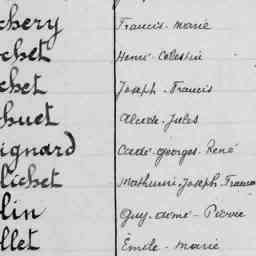 chery Francis-Marie
chet Henri-Célestin
chet Joseph-Francis
huet Alcide-Jules
ignard Georges-René
lichet Mathurin-Joseph-Francis
lin Guy-Aimé-Pierre
llet Émile-Marie